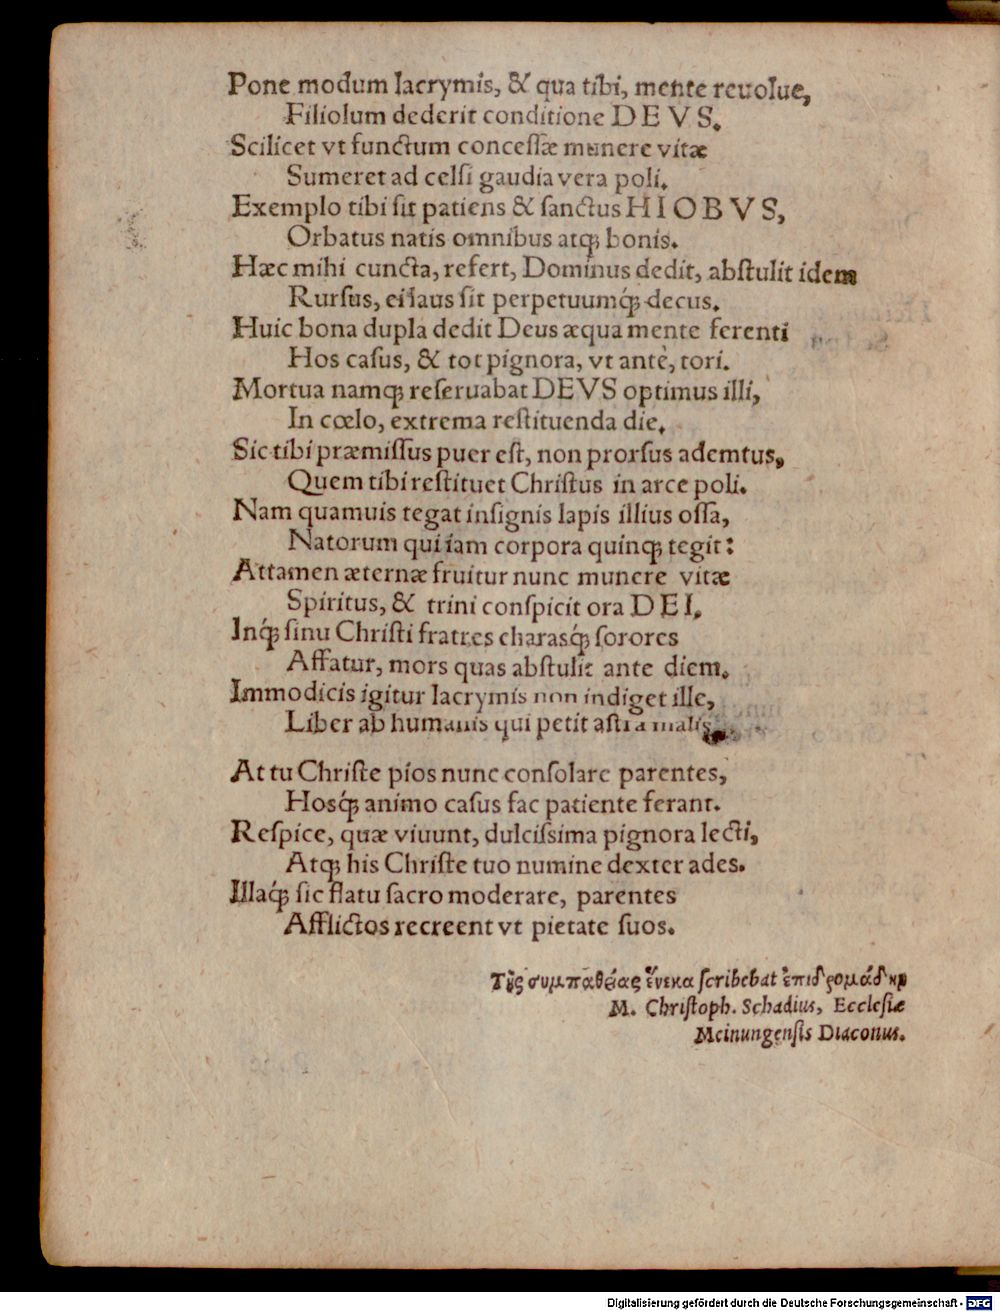 Pone modum lacrymis, & qua tibi, mente reuolue,
Filiolum dederit conditione DEVS.
Scilicet vt functum conceſſæ munere vitæ
Sumeret ad celſi gaudia vera poli.
Exemplo tibi ſit patiens & ſanctus HIOBVS,
Orbatus natis omnibus atq; bonis.
Hæc mihi cuncta, refert, Dominus dedit, abſtulit idem
Rurſus, ei laus ſit perpetuumq́; decus.
Huic bona dupla dedit Deus æqua mente ferenti
Hos caſus, & tot pignora, vt antè, tori.
Mortua namq; reſeruabat DEVS optimus illi,
In cœlo, extrema reſtituenda die.
Sic tibi præmiſſus puer eſt, non prorſus ademtus,
Quem tibi reſtituet Chriſtus in arce poli.
Nam quamuis tegat inſignis lapis illius oſſa,
Natorum qui iam corpora quinq; tegit:
Attamen æternæ fruitur nunc munere vitæ
Spiritus, & trini conſpicit ora DEI.
Inq́; ſinu Chriſti fratres charasq́; ſorores
Affatur, mors quas abſtulit ante diem.
Immodicis igitur lacrymis non indiget ille,
Liber ab humanis qui petit aſtra malis
At tu Chriſte píos nunc conſolare parentes,
Hosq́; animo caſus fac patiente ferant.
Reſpice, quæ viuunt, dulciſsima pignora lecti,
Atq; his Chriſte tuo numine dexter ades.
Illaq́; ſic flatu ſacro moderare, parentes
Afflictos recreent vt pietate ſuos.
Τῆς συμπαθείας ἕνεκα ſcribebat ἐπιδρομάδην
M. Chriſtoph. Schadius, Eccleſiæ
Meinungenſis Diaconus.
Digitalisierung gefördert durch die Deutsche Forschungsgemeinschaft - DFG